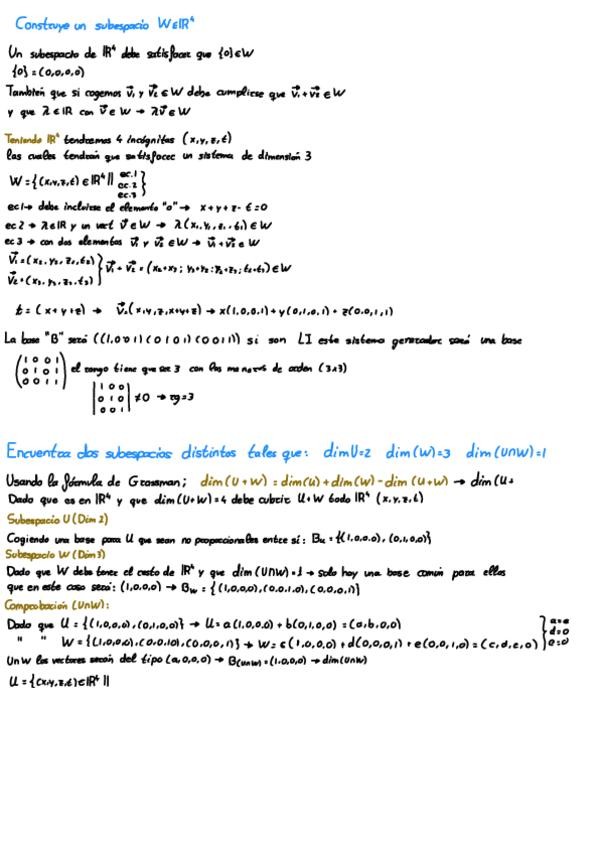 Construye un subespacio W∈ℝ⁴
Un subespacio de ℝ⁴ debe satisfacer que {0}∈W
{0}=(0,0,0,0)
También que si cogemos v⃗₁ y v⃗₂ ∈ W debe cumplirse que v⃗₁+v⃗₂ ∈ W
y que λ∈ℝ con v⃗∈W → λv⃗∈W
Teniendo ℝ⁴ tendremos 4 incógnitas (x,y,z,t)
las cuales tendrán que satisfacer un sistema de dimensión 3
W={(x,y,z,t)∈ℝ⁴ || ec.1 ec.2 ec.3}
ec1→ debe incluirse el elemento "0"→ x+y+z-t=0
ec2→ λ∈ℝ y un vect v⃗∈W → λ(x₁,y₁,z₁,t₁)∈W
ec3→ con dos elementos v⃗₁ y v⃗₂ ∈W → v⃗₁+v⃗₂∈W
v⃗₁=(x₂,y₂,z₂,t₂)
v⃗₂=(x₃,y₃,z₃,t₃) } v⃗₁+v⃗₂=(x₂+x₃; y₂+y₃; z₂+z₃; t₂+t₃)∈W
t=(x+y+z) → v⃗₀(x,y,z,x+y+z) → x(1,0,0,1)+y(0,1,0,1)+z(0,0,1,1)
La base "B" será ((1,0 0 1)(0 1 0 1)(0 0 1 1)) si son LI este sistema generador será una base
(1 0 0 1
0 1 0 1
0 0 1 1) el rango tiene que ser 3 con los menores de orden (3x3)
|1 0 0
0 1 0
0 0 1| ≠0 → rg=3
Encuentra dos subespacios distintos tales que: dimU=2 dim(W)=3 dim(U∩W)=1
Usando la fórmula de Grassman; dim(U+W)=dim(U)+dim(W)-dim(U+W) → dim(U+
Dado que es en ℝ⁴ y que dim(U+W)=4 debe cubrir U+W todo ℝ⁴ (x,y,z,t)
Subespacio U (Dim 2)
Cogiendo una base para U que sean no proporcionales entre sí: Bᵤ={(1,0,0,0),(0,1,0,0)}
Subespacio W (Dim3)
Dado que W debe tener el resto de ℝ⁴ y que dim(U∩W)=1 → solo hay una base común para ellos
que en este caso será: (1,0,0,0) → B_W={(1,0,0,0),(0,0,1,0),(0,0,0,1)}
Comprobación (U∩W):
Dado que U={(1,0,0,0),(0,1,0,0)} → U=a(1,0,0,0)+b(0,1,0,0)=(a,b,0,0)
" " W={(1,0,0,0),(0,0,1,0),(0,0,0,1)} → W=c(1,0,0,0)+d(0,0,0,1)+e(0,0,1,0)=(c,d,e,0) } a=e d=0 e=0
U∩W los vectores serán del tipo (a,0,0,0) → B(U∩W)=(1,0,0,0) → dim(U∩W)
U={(x,y,z,t)∈ℝ⁴ ||